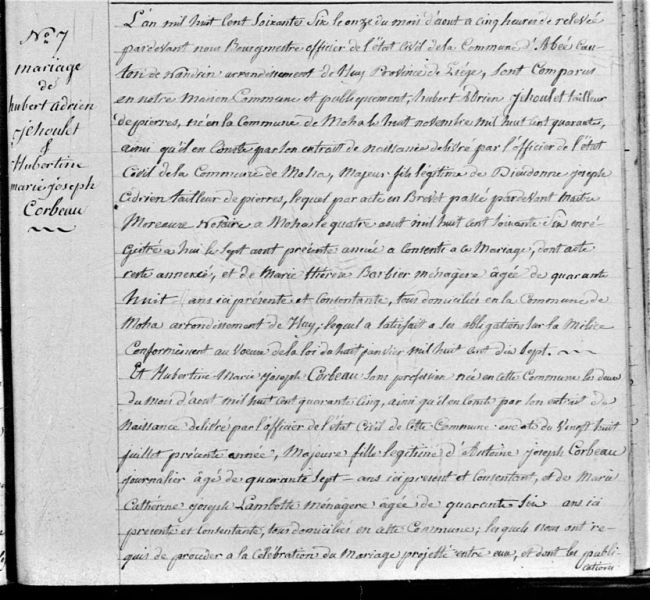 No 7
mariage
de
hubert adrien
Jehoulet
&
Hubertine
marie joseph
Corbeau
L'an mil huit cent soixante six le onze du mois d'aout a cinq heures de relevée
pardevant nous Bourgmestre officier de l'état Civil de la Commune d'Abée Can-
ton de Nandrin arrondissement de Huy Province de Liége, sont Comparus
en notre Maison Commune et publiquement, hubert Adrien Jehoulet tailleur
de pierres, né en la Commune de Moha le huit novembre mil huit cent quarante,
ainsi qu'il en Conste par son extrait de naissance delivré par l'officier de l'état
Civil de la Commune de Moha, Majeur fils légitime de Dieudonné joseph
Adrien tailleur de pierres, lequel par acte en Brevet passé pardevant Maitre
Moreau Notaire a Moha le quatre aout mil huit cent soixante six enré-
gistré a hui le sept aout présente année a Consenti a ce Mariage, dont acte
reste annexé, et de Marie thérèse Barbier ménagère âgée de quarante
huit ans ici présente et Consentante, tous domiciliés en la Commune de
Moha arrondissement de Huy; lequel a satisfait a ses obligations sur la Milice
Conformément au voeu de la loi du huit janvier mil huit cent dix sept.
Et Hubertine Marie joseph Corbeau sans profession née en cette Commune le deux
du mois d'aout mil huit cent quarante cinq, ainsi qu'il en Conste par son extrait de
naissance delivré par l'officier de l'état Civil de cette Commune en date du vingt huit
juillet présente année, Majeure fille legitime d'Antoine joseph Corbeau
journalier âgé de quarante sept ans ici present et Consentant, et de Marie
Catherine joseph Lambotte ménagère âgée de quarante six ans ici
présente et Consentante, tous domiciliés en cette Commune; lesquels nous ont re-
quis de procéder a la Célébration du Mariage projetté entre eux, et dont les publi-
cations